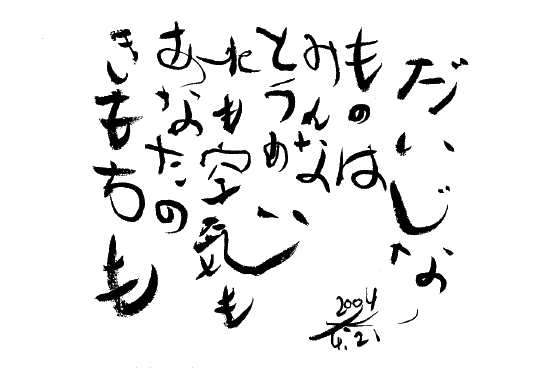 だいじな
ものは
みんな
とうめい
水も空気も
あなたの
きもちも
2004
4.21